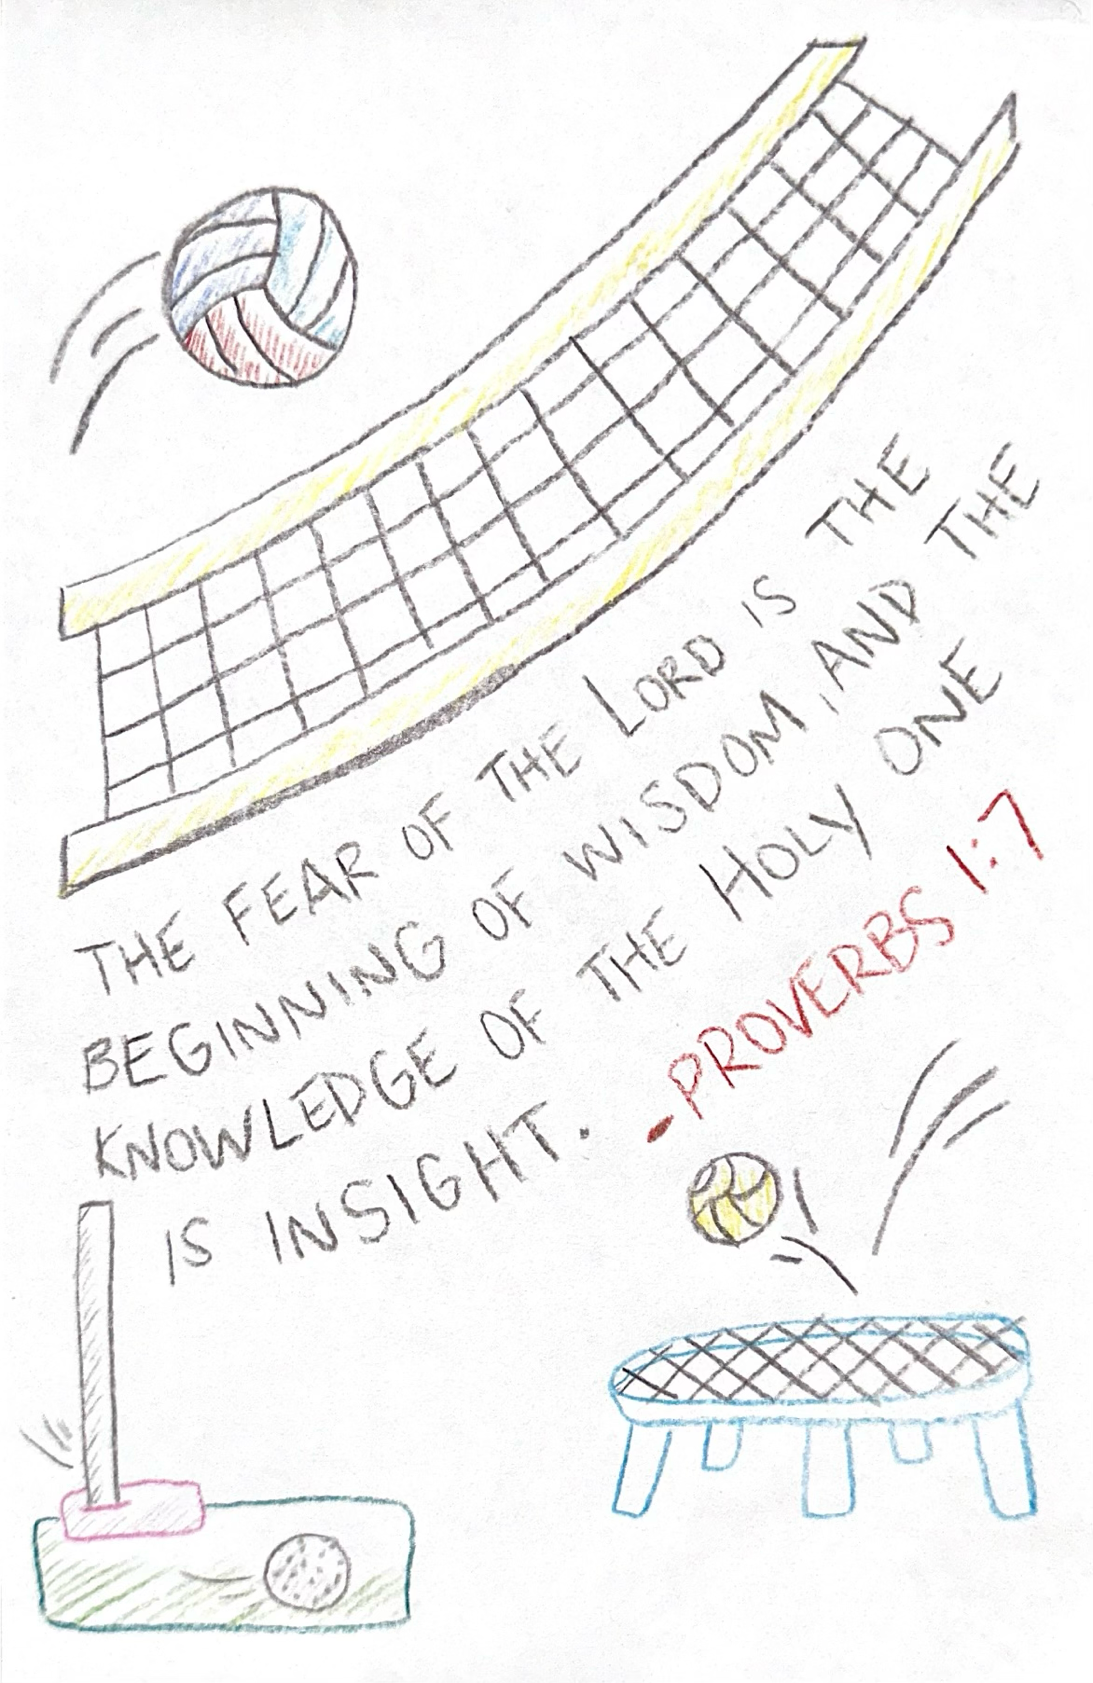 THE FEAR OF THE LORD IS THE
BEGINNING OF WISDOM, AND THE
KNOWLEDGE OF THE HOLY ONE
IS INSIGHT.
-PROVERBS 1:7